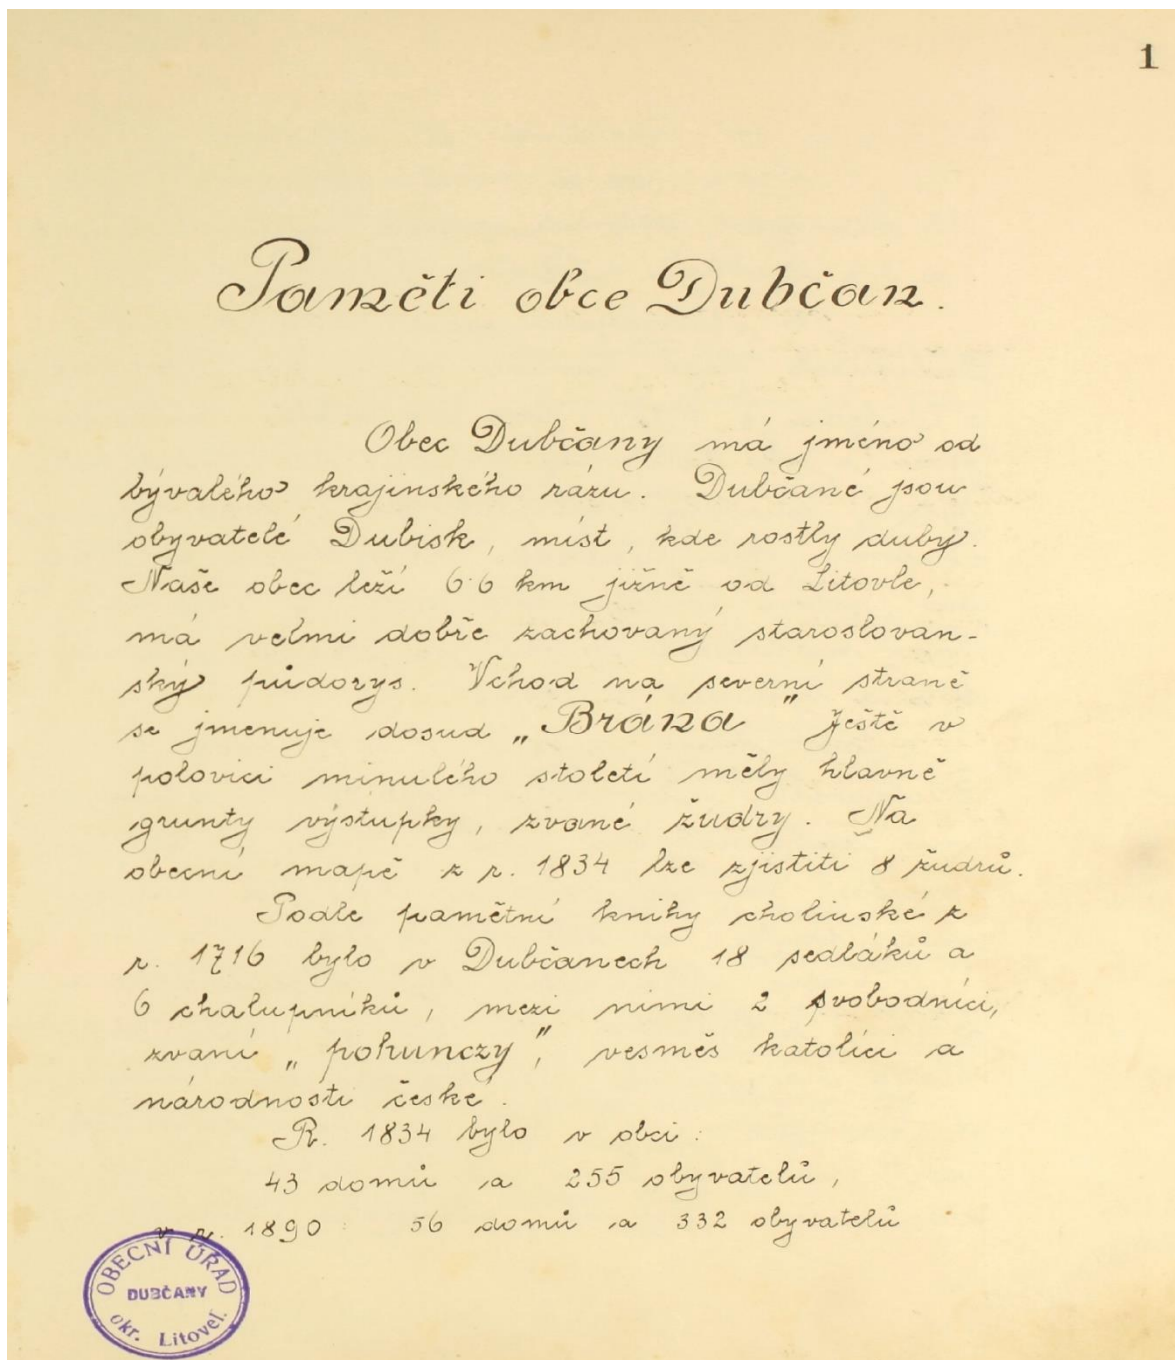 1
Paměti obce Dubčan.
Obec Dubčany má jméno od
bývalého krajinského rázu. Dubčané jsou
obyvatelé Dubisk, míst, kde rostly duby.
Naše obec leží 6·6 km jižně od Litovle,
má velmi dobře zachovaný staroslovan-
ský půdorys. Vchod na severní straně
se jmenuje dosud „Brána" Ještě v
polovici minulého století měly hlavně
grunty výstupky, zvané žudry. Na
obecní mapě z r. 1834 lze zjistiti 8 žudrů.
Podle pamětní knihy cholinské z
r. 1716 bylo v Dubčanech 18 sedláků a
6 chalupníků, mezi nimi 2 svobodníci,
zvaní „pohunczy", vesměs katolíci a
národnosti české.
R. 1834 bylo v obci:
43 domů a 255 obyvatelů,
v r. 1890: 56 domů a 332 obyvatelů
OBECNÍ ÚŘAD
DUBČANY
okr. Litovel.